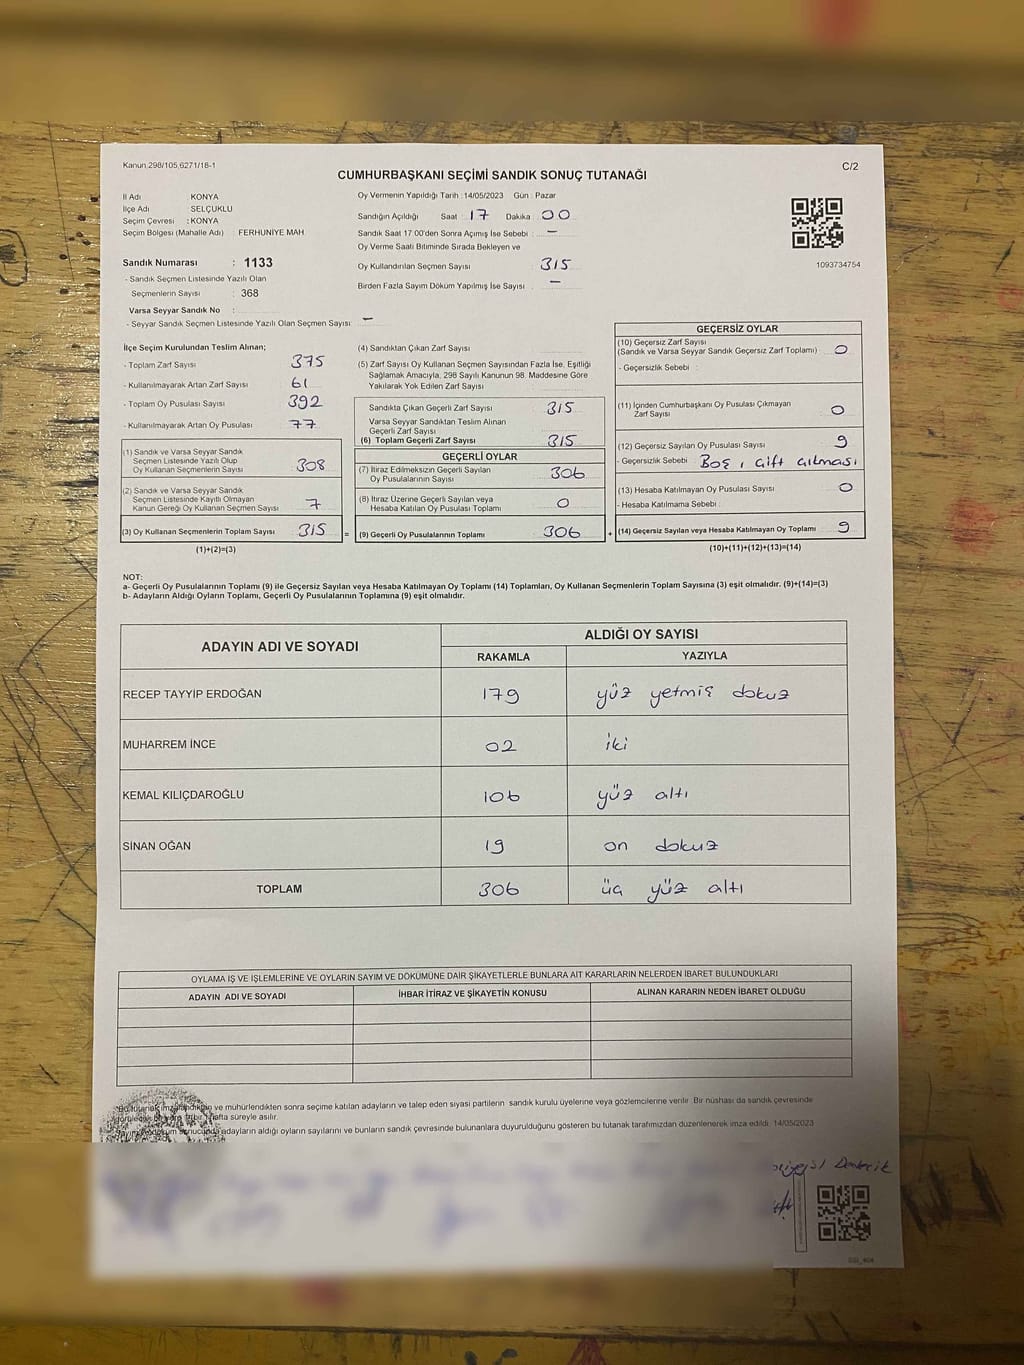 Kanun 298/105,6271/18-1
C/2
CUMHURBAŞKANI SEÇİMİ SANDIK SONUÇ TUTANAĞI
İl Adı KONYA
İlçe Adı : SELÇUKLU
Seçim Çevresi : KONYA
Seçim Bölgesi (Mahalle Adı) : FERHUNİYE MAH.
Sandık Numarası : 1133
- Sandık Seçmen Listesinde Yazılı Olan
Seçmenlerin Sayısı : 368
Varsa Seyyar Sandık No :
- Seyyar Sandık Seçmen Listesinde Yazılı Olan Seçmen Sayısı: —
Oy Vermenin Yapıldığı Tarih : 14/05/2023 Gün : Pazar
Sandığın Açıldığı Saat : 17 Dakika : 00
Sandık Saat 17:00'den Sonra Açımış İse Sebebi : —
Oy Verme Saati Bitiminde Sırada Bekleyen ve
Oy Kullandırılan Seçmen Sayısı : 315
Birden Fazla Sayım Döküm Yapılmış İse Sayısı : —
1093734754
İlçe Seçim Kurulundan Teslim Alınan;
- Toplam Zarf Sayısı : 375
- Kullanılmayarak Artan Zarf Sayısı : 61
- Toplam Oy Pusulası Sayısı : 392
- Kullanılmayarak Artan Oy Pusulası : 77
(1) Sandık ve Varsa Seyyar Sandık
Seçmen Listesinde Yazılı Olup
Oy Kullanan Seçmenlerin Sayısı : 308
(2) Sandık ve Varsa Seyyar Sandık
Seçmen Listesinde Kayıtlı Olmayan
Kanun Gereği Oy Kullanan Seçmen Sayısı : 7
(3) Oy Kullanan Seçmenlerin Toplam Sayısı : 315
(1)+(2)=(3)
(4) Sandıktan Çıkan Zarf Sayısı :
(5) Zarf Sayısı Oy Kullanan Seçmen Sayısından Fazla İse, Eşitliği
Sağlamak Amacıyla, 298 Sayılı Kanunun 98. Maddesine Göre
Yakılarak Yok Edilen Zarf Sayısı :
Sandıkta Çıkan Geçerli Zarf Sayısı : 315
Varsa Seyyar Sandıktan Teslim Alınan
Geçerli Zarf Sayısı
(6) Toplam Geçerli Zarf Sayısı : 315
GEÇERLİ OYLAR
(7) İtiraz Edilmeksizin Geçerli Sayılan
Oy Pusulalarının Sayısı : 306
(8) İtiraz Üzerine Geçerli Sayılan veya
Hesaba Katılan Oy Pusulaları Toplamı : 0
= (9) Geçerli Oy Pusulalarının Toplamı : 306
GEÇERSİZ OYLAR
(10) Geçersiz Zarf Sayısı
(Sandık ve Varsa Seyyar Sandık Geçersiz Zarf Toplamı) : 0
- Geçersizlik Sebebi :
(11) İçinden Cumhurbaşkanı Oy Pusulası Çıkmayan
Zarf Sayısı : 0
(12) Geçersiz Sayılan Oy Pusulası Sayısı : 9
- Geçersizlik Sebebi : Boş, çift çıkması
(13) Hesaba Katılmayan Oy Pusulası Sayısı : 0
- Hesaba Katılmama Sebebi :
+ (14) Geçersiz Sayılan veya Hesaba Katılmayan Oy Toplamı : 9
(10)+(11)+(12)+(13)=(14)
NOT:
a- Geçerli Oy Pusulalarının Toplamı (9) ile Geçersiz Sayılan veya Hesaba Katılmayan Oy Toplamı (14) Toplamları, Oy Kullanan Seçmenlerin Toplam Sayısına (3) eşit olmalıdır. (9)+(14)=(3)
b- Adayların Aldığı Oyların Toplamı, Geçerli Oy Pusulalarının Toplamına (9) eşit olmalıdır.
ADAYIN ADI VE SOYADI
ALDIĞI OY SAYISI
RAKAMLA YAZIYLA
RECEP TAYYİP ERDOĞAN 179 yüz yetmiş dokuz
MUHARREM İNCE 02 iki
KEMAL KILIÇDAROĞLU 106 yüz altı
SİNAN OĞAN 19 on dokuz
TOPLAM 306 üç yüz altı
OYLAMA İŞ VE İŞLEMLERİNE VE OYLARIN SAYIM VE DÖKÜMÜNE DAİR ŞİKAYETLERLE BUNLARA AİT KARARLARIN NELERDEN İBARET BULUNDUKLARI
ADAYIN ADI VE SOYADI İHBAR İTİRAZ VE ŞİKAYETİN KONUSU ALINAN KARARIN NEDEN İBARET OLDUĞU
ve mühürlendikten sonra seçime katılan adayların ve talep eden siyasi partilerin sandık kurulu üyelerine veya gözlemcilerine verilir. Bir nüshası da sandık çevresinde
hafta süreyle asılır.
adayların aldığı oyların sayılarını ve bunların sandık çevresinde bulunanlara duyurulduğunu gösteren bu tutanak tarafımızdan düzenlenerek imza edildi. 14/05/2023